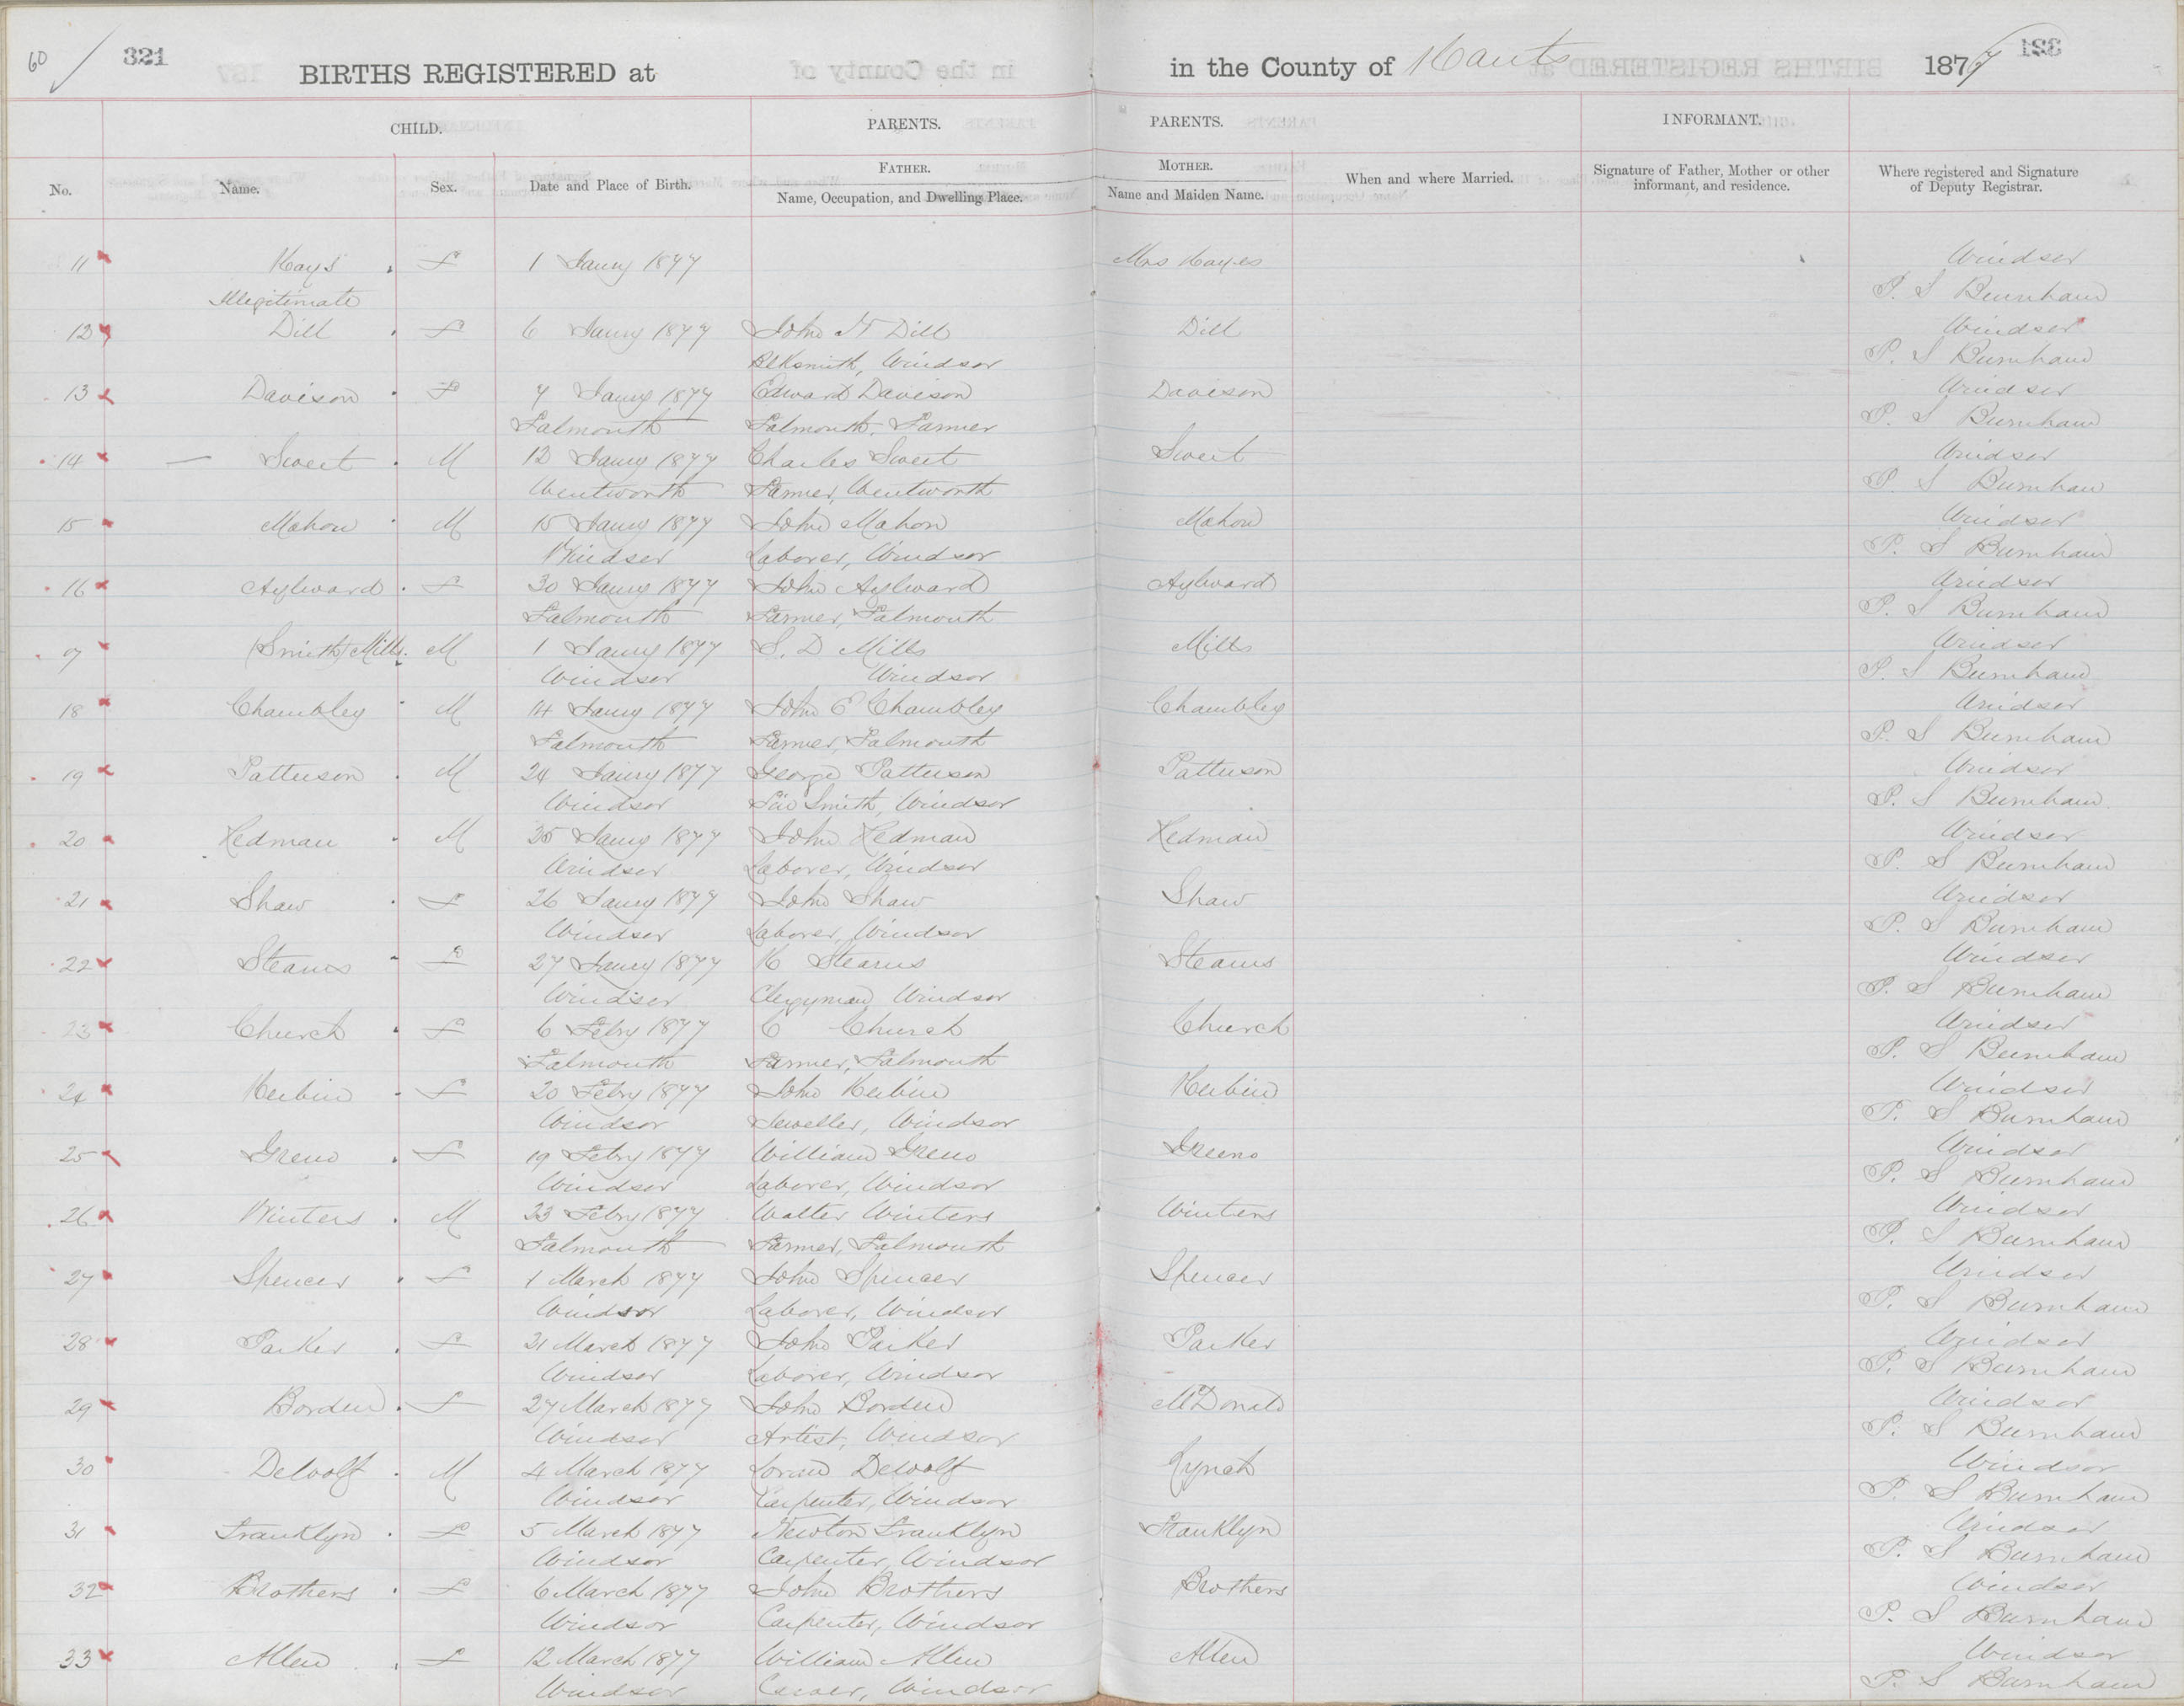 60 321 BIRTHS REGISTERED at in the County of Hants 1877
CHILD. PARENTS. PARENTS. INFORMANT.
No. Name. Sex. Date and Place of Birth. FATHER. Name, Occupation, and Dwelling Place. MOTHER. Name and Maiden Name. When and where Married. Signature of Father, Mother or other informant, and residence. Where registered and Signature of Deputy Registrar.
11 Hays F 1 Jany 1877 Mrs Hayes Windsor
Illegitimate P. S Burnham
12 Dill F 6 Jany 1877 John N Dill Dill Windsor
Blksmith, Windsor P. S Burnham
13 Davison F 7 Jany 1877 Edward Davison Davison Windsor
Falmouth Falmouth, Farmer P. S Burnham
14 — Sweet M 12 Jany 1877 Charles Sweet Sweet Windsor
Wentworth Farmer, Wentworth P. S Burnham
15 Mahon M 15 Jany 1877 John Mahon Mahon Windsor
Windsor Laborer, Windsor P. S Burnham
16 Aylward F 30 Jany 1877 John Aylward Aylward Windsor
Falmouth Farmer, Falmouth P. S Burnham
17 (Smith) Mills M 1 Jany 1877 S. D Mills Mills Windsor
Windsor Windsor P. S Burnham
18 Chambley M 14 Jany 1877 John E Chambley Chambley Windsor
Falmouth Farmer, Falmouth P. S Burnham
19 Patterson M 24 Jany 1877 George Patterson Patterson Windsor
Windsor Smith, Windsor P. S Burnham
20 Redman M 25 Jany 1877 John Redman Redman Windsor
Windsor Laborer, Windsor P. S Burnham
21 Shaw F 26 Jany 1877 John Shaw Shaw Windsor
Windsor Laborer, Windsor P. S Burnham
22 Stearns F 27 Jany 1877 H Stearns Stearns Windsor
Windsor Clergyman Windsor P. S Burnham
23 Church F 6 Febry 1877 C Church Church Windsor
Falmouth Farmer, Falmouth P. S Burnham
24 Herbin F 20 Febry 1877 John Herbin Herbin Windsor
Windsor Jeweller, Windsor P. S Burnham
25 Greno F 19 Febry 1877 William Greno Greeno Windsor
Windsor Laborer, Windsor P. S Burnham
26 Winters M 23 Febry 1877 Walter Winters Winters Windsor
Falmouth Farmer, Falmouth P. S Burnham
27 Spencer F 1 March 1877 John Spencer Spencer Windsor
Windsor Laborer, Windsor P. S Burnham
28 Parker F 21 March 1877 John Parker Parker Windsor
Windsor Laborer, Windsor P. S Burnham
29 Borden F 27 March 1877 John Borden McDonald Windsor
Windsor Artist, Windsor P. S Burnham
30 DeWolf M 4 March 1877 DeWolf Lynch Windsor
Windsor Carpenter, Windsor P. S Burnham
31 Franklyn F 5 March 1877 Newton Franklyn Franklyn Windsor
Windsor Carpenter, Windsor P. S Burnham
32 Brothers F 6 March 1877 John Brothers Brothers Windsor
Windsor Carpenter, Windsor P. S Burnham
33 Allen F 12 March 1877 William Allen Allen Windsor
Windsor Windsor P. S Burnham